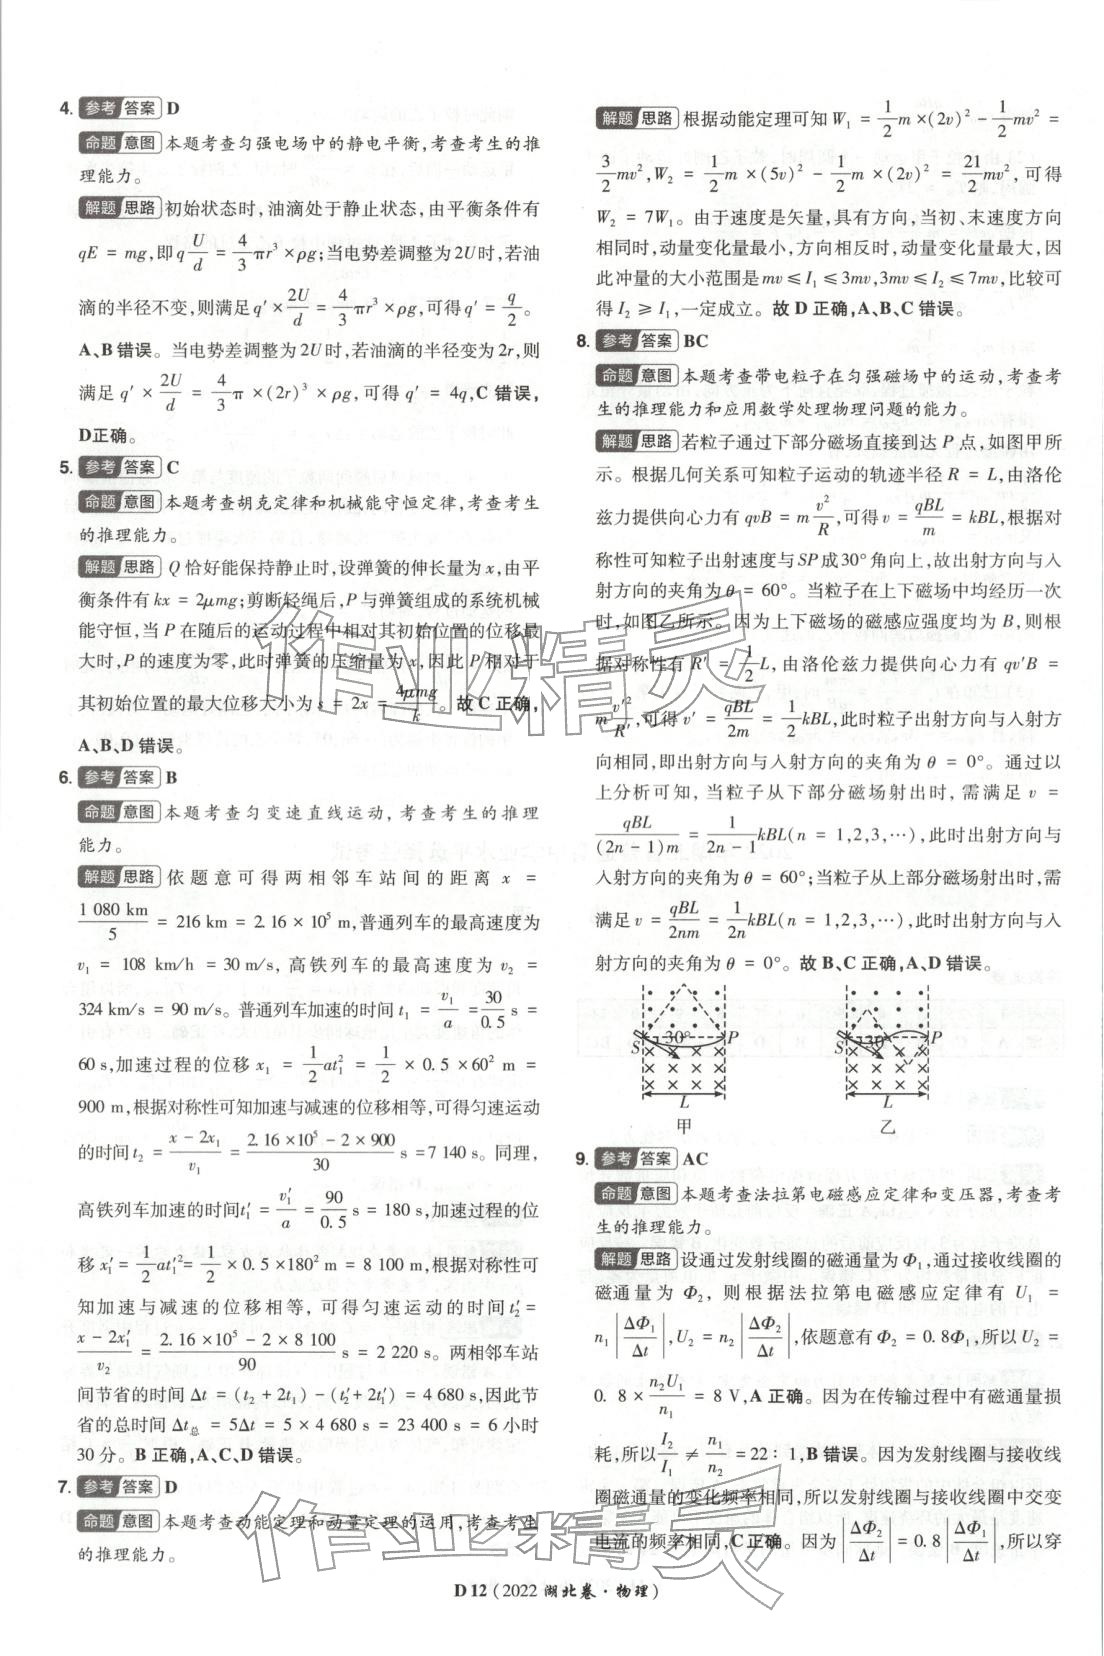 4. 参考 答案 D
命题 意图 本题考查匀强电场中的静电平衡,考查考生的推
理能力。
解题 思路 初始状态时,油滴处于静止状态,由平衡条件有
qE = mg,即q U/d = 4/3 πr³ × ρg;当电势差调整为 2U 时,若油
滴的半径不变,则满足 q′ × 2U/d = 4/3 πr³ × ρg,可得 q′ = q/2。
A、B 错误。当电势差调整为 2U 时,若油滴的半径变为 2r,则
满足 q′ × 2U/d = 4/3 π × (2r)³ × ρg,可得 q′ = 4q,C 错误,
D正确。
5. 参考 答案 C
命题 意图 本题考查胡克定律和机械能守恒定律,考查考生
的推理能力。
解题 思路 Q 恰好能保持静止时,设弹簧的伸长量为 x,由平
衡条件有 kx = 2μmg;剪断轻绳后,P 与弹簧组成的系统机械
能守恒,当 P 在随后的运动过程中相对其初始位置的位移最
大时,P 的速度为零,此时弹簧的压缩量为 x,因此 P 相对于
其初始位置的最大位移大小为 s = 2x = 4μmg/k。故 C 正确,
A、B、D 错误。
6. 参考 答案 B
命题 意图 本题考查匀变速直线运动,考查考生的推理
能力。
解题 思路 依题意可得两相邻车站间的距离 x =
1 080 km/5 = 216 km = 2.16 × 10⁵ m,普通列车的最高速度为
v₁ = 108 km/h = 30 m/s,高铁列车的最高速度为 v₂ =
324 km/h = 90 m/s。普通列车加速的时间 t₁ = v₁/a = 30/0.5 s =
60 s,加速过程的位移 x₁ = 1/2 at₁² = 1/2 × 0.5 × 60² m =
900 m,根据对称性可知加速与减速的位移相等,可得匀速运动
的时间 t₂ = (x − 2x₁)/v₁ = (2.16 ×10⁵ − 2 × 900)/30 s = 7 140 s。同理,
高铁列车加速的时间t₁′ = v₁′/a = 90/0.5 s = 180 s,加速过程的位
移 x₁′ = 1/2 at₁′² = 1/2 × 0.5 ×180² m = 8 100 m,根据对称性可
知加速与减速的位移相等,可得匀速运动的时间 t₂′ =
(x − 2x₁′)/v₂ = (2.16 ×10⁵ − 2 × 8 100)/90 s = 2 220 s。两相邻车站
间节省的时间 Δt = (t₂ + 2t₁) − (t₂′ + 2t₁′) = 4 680 s,因此节
省的总时间 Δt总 = 5Δt = 5 × 4 680 s = 23 400 s = 6 小时
30 分。B 正确,A、C、D 错误。
7. 参考 答案 D
命题 意图 本题考查动能定理和动量定理的运用,考查考生
的推理能力。
解题 思路 根据动能定理可知 W₁ = 1/2 m × (2v)² − 1/2 mv² =
3/2 mv²,W₂ = 1/2 m × (5v)² − 1/2 m × (2v)² = 21/2 mv²,可得
W₂ = 7W₁。由于速度是矢量,具有方向,当初、末速度方向
相同时,动量变化量最小,方向相反时,动量变化量最大,因
此冲量的大小范围是 mv ≤ I₁ ≤ 3mv,3mv ≤ I₂ ≤ 7mv,比较可
得 I₂ ≥ I₁,一定成立。故 D 正确,A、B、C 错误。
8. 参考 答案 BC
命题 意图 本题考查带电粒子在匀强磁场中的运动,考查考
生的推理能力和应用数学处理物理问题的能力。
解题 思路 若粒子通过下部分磁场直接到达 P 点,如图甲所
示。根据几何关系可知粒子运动的轨迹半径 R = L,由洛伦
兹力提供向心力有 qvB = m v²/R,可得 v = qBL/m = kBL,根据对
称性可知粒子出射速度与 SP 成 30° 角向上,故出射方向与入
射方向的夹角为 θ = 60°。当粒子在上下磁场中均经历一次
时,如图乙所示。因为上下磁场的磁感应强度均为 B,则根
据对称性有 R′ = 1/2 L,由洛伦兹力提供向心力有 qv′B =
m v′²/R′,可得 v′ = qBL/2m = 1/2 kBL,此时粒子出射方向与入射方
向相同,即出射方向与入射方向的夹角为 θ = 0°。通过以
上分析可知,当粒子从下部分磁场射出时,需满足 v =
qBL/(2n − 1)m = 1/(2n − 1) kBL(n = 1,2,3,⋯),此时出射方向与
入射方向的夹角为 θ = 60°;当粒子从上部分磁场射出时,需
满足 v = qBL/2nm = 1/2n kBL(n = 1,2,3,⋯),此时出射方向与入
射方向的夹角为 θ = 0°。故 B、C 正确,A、D 错误。
S 30° P L 甲
S 30° P L 乙
9. 参考 答案 AC
命题 意图 本题考查法拉第电磁感应定律和变压器,考查考
生的推理能力。
解题 思路 设通过发射线圈的磁通量为 Φ₁,通过接收线圈的
磁通量为 Φ₂,则根据法拉第电磁感应定律有 U₁ =
n₁|ΔΦ₁/Δt|,U₂ = n₂|ΔΦ₂/Δt|,依题意有 Φ₂ = 0.8Φ₁,所以 U₂ =
0.8 × n₂U₁/n₁ = 8 V,A 正确。因为在传输过程中有磁通量损
耗,所以 I₂/I₁ ≠ n₁/n₂ = 22∶1,B 错误。因为发射线圈与接收线
圈磁通量的变化频率相同,所以发射线圈与接收线圈中交变
电流的频率相同,C 正确。因为 |ΔΦ₂/Δt| = 0.8 |ΔΦ₁/Δt|,所以穿
D 12 (2022 湖北卷 · 物理)
作业精灵
作业精灵